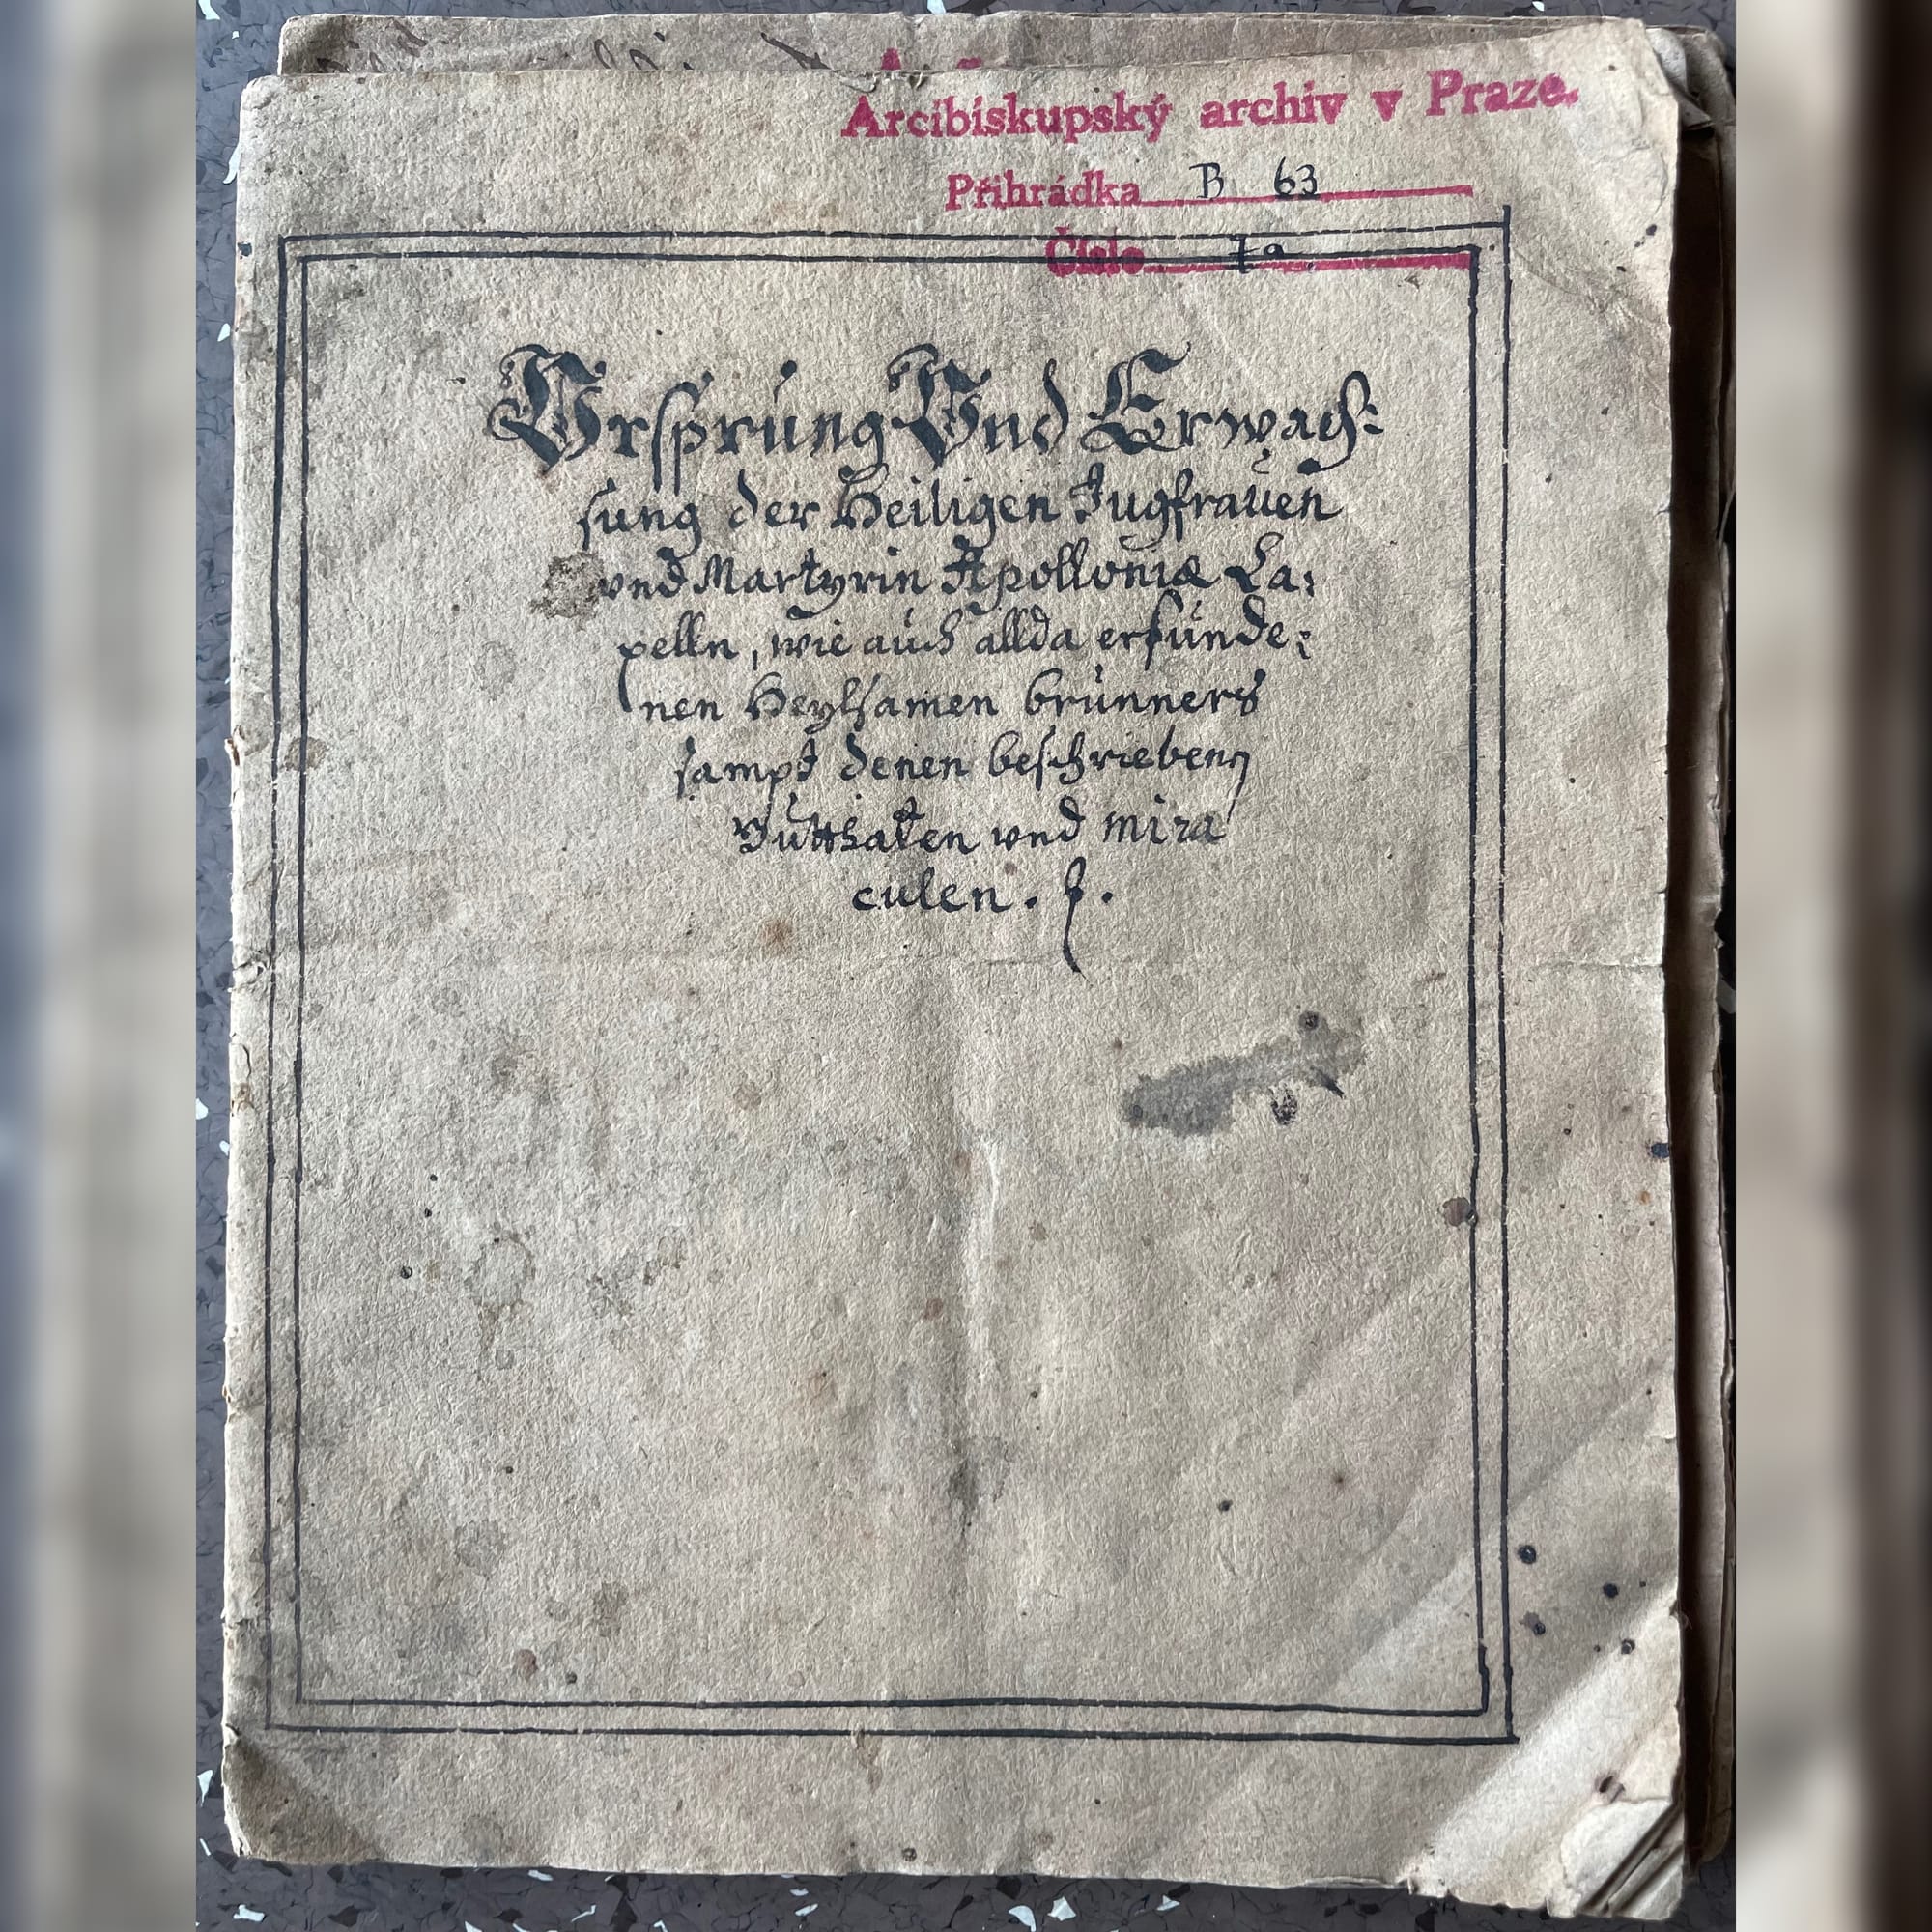 Arcibiskupský archiv v Praze.
Přihrádka B 63
Číslo
Vrsprung Vnd Erwach:
sung der Heiligen Jugfrauen
vnd Martyrin Apolloniæ Ca:
pelln, wie auch allda erfunde:
nen Heylsamen brunners
sampt denen beschrieben
Gutthaten vnd mira
culen.